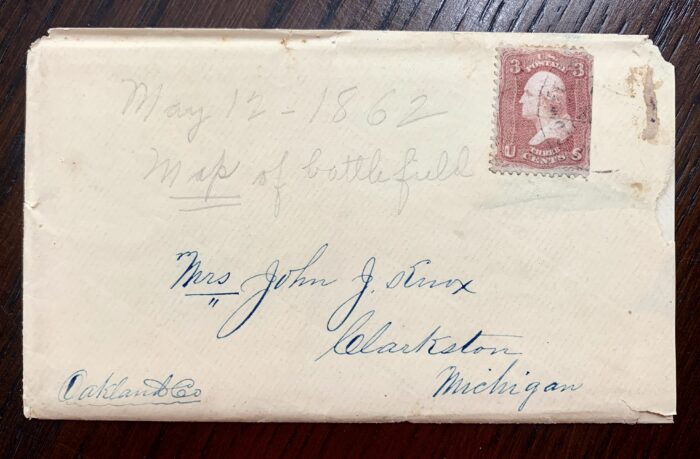 May 12 - 1862
Map of battlefield
3 U.S. POSTAGE 3
U THREE CENTS S
Mrs John J. Knox
Clarkston
Michigan
Oakland Co